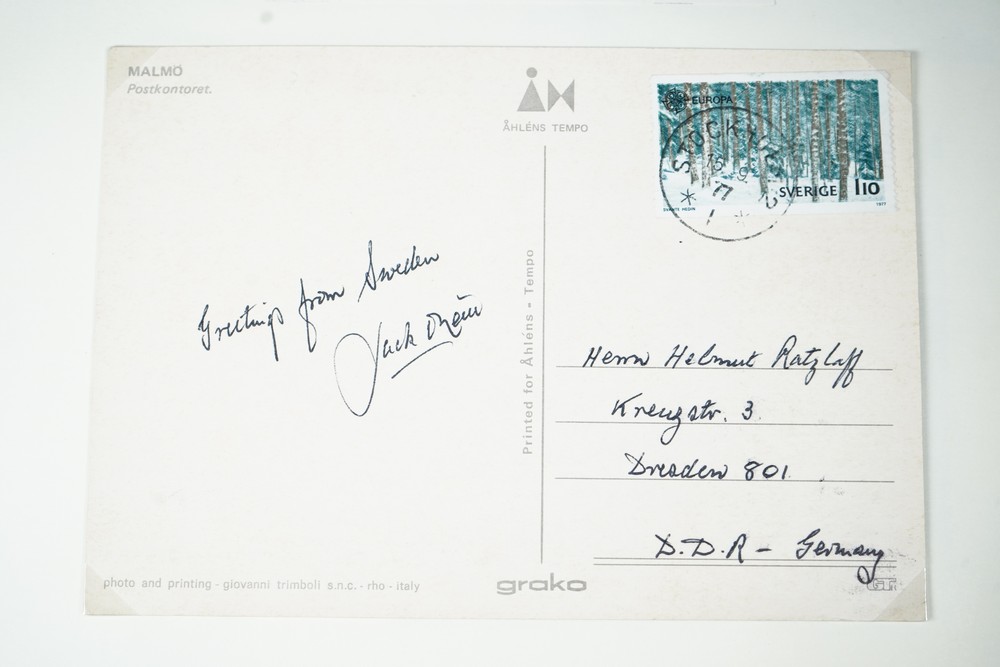 MALMÖ
Postkontoret.
ÅHLÉNS TEMPO
EUROPA
STOCKHOLM
9
77
SVERIGE 1 10
1977
Greetings from Sweden
Jack
Printed for Åhléns - Tempo
Herrn Helmut Ratzlaff
Kreuzstr. 3
Dresden 801
D.D.R - Germany
photo and printing - giovanni trimboli s.n.c. - rho - italy
grako